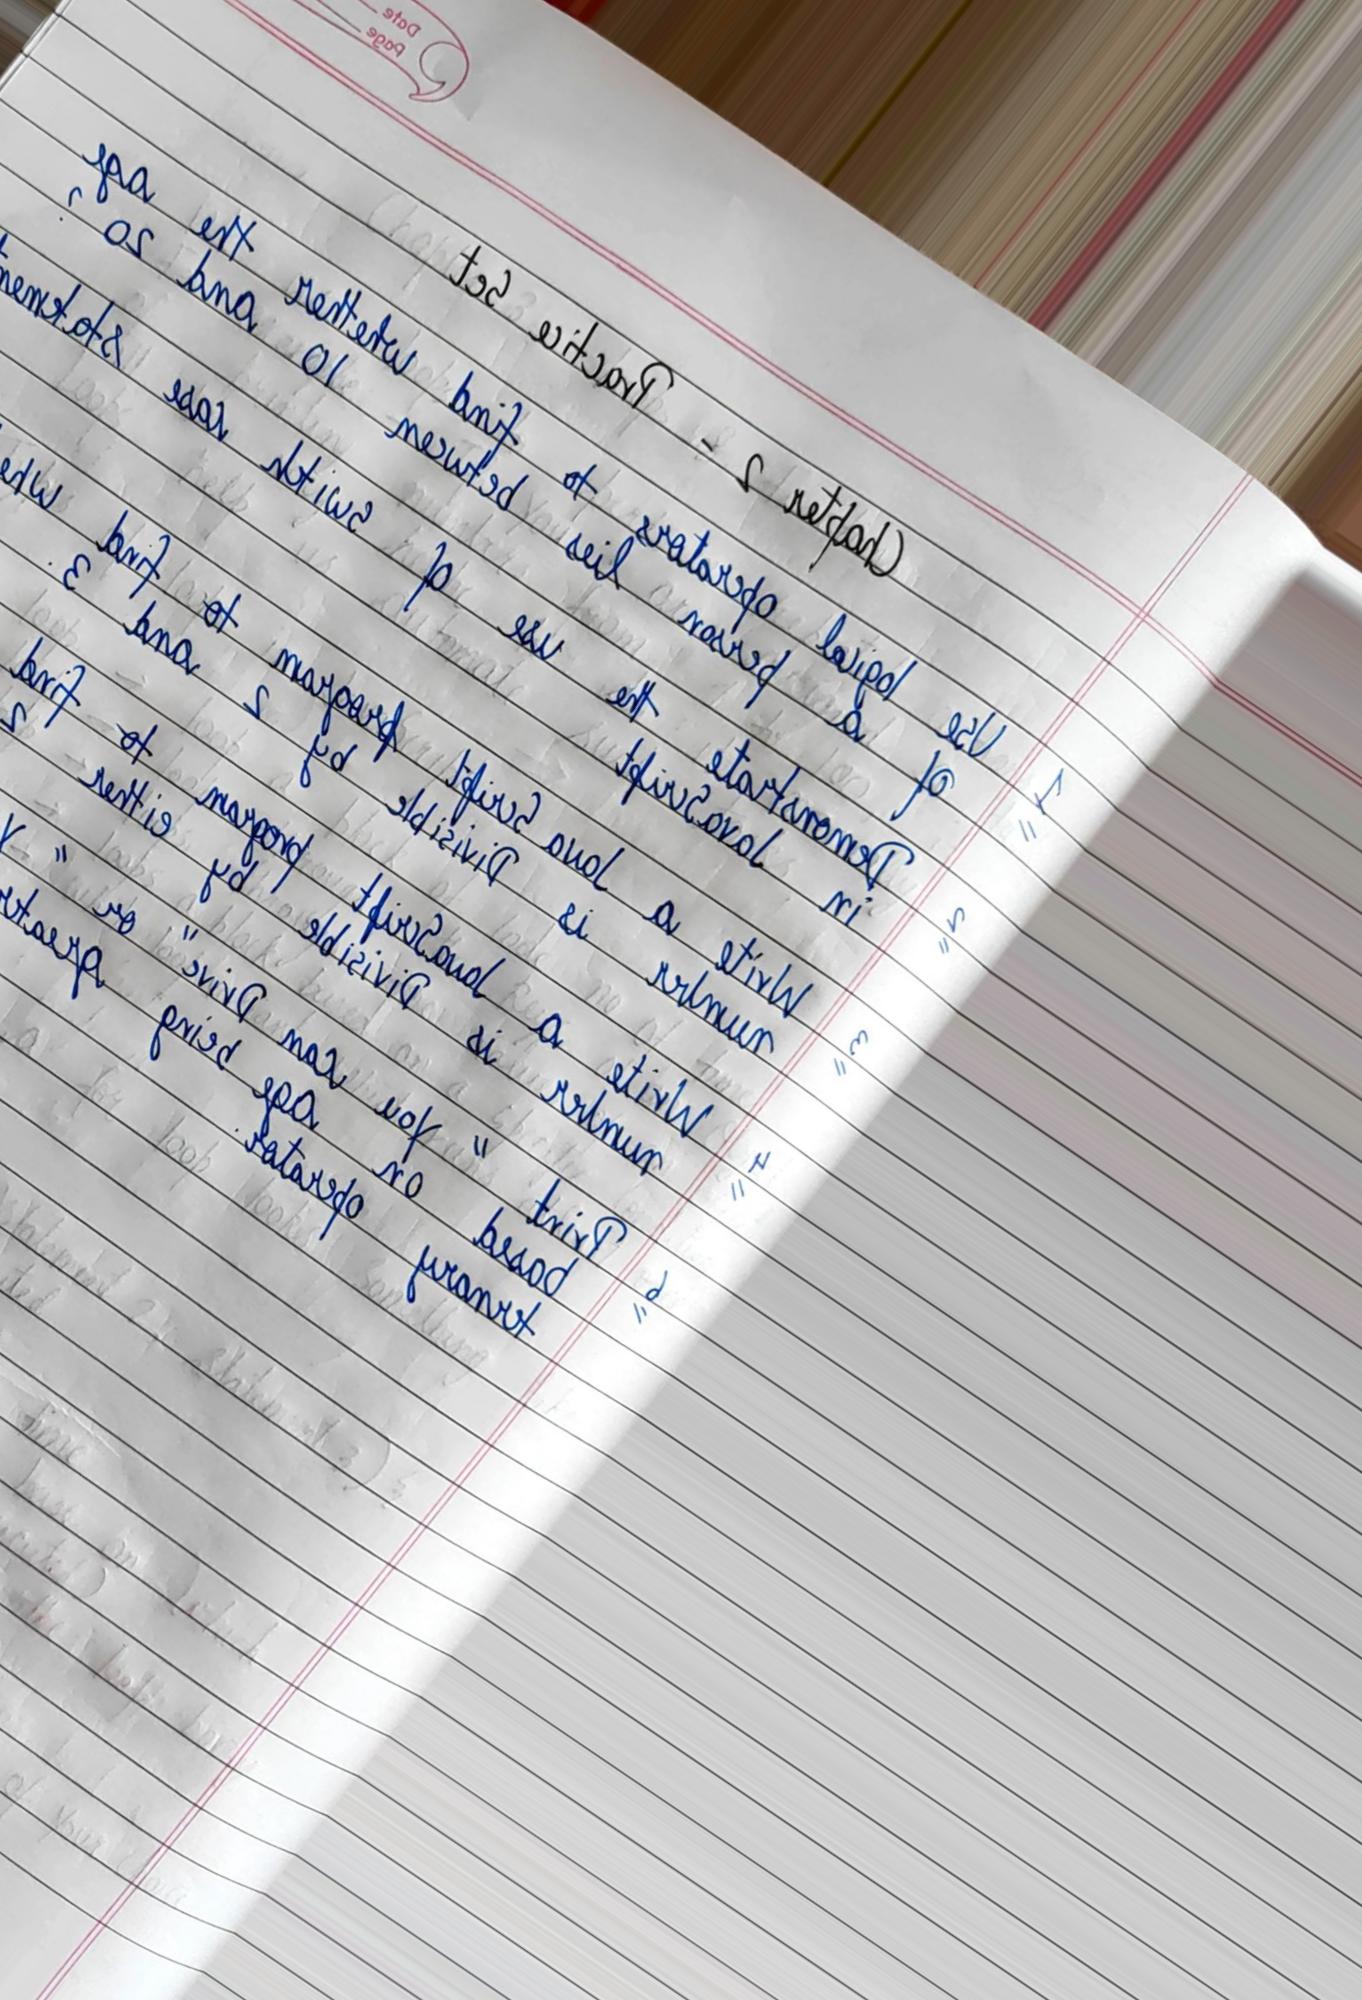 Date
Page
Chapter 2 - Practice Set
1" Use logical operators to find whether the age
of a person lies between 10 and 20 ?
2" Demonstrate the use of switch case
in JavaScript
3" Write a JavaScript program to find
number is Divisible by 2 and 3.
4" Write a JavaScript program to find
number is Divisible by either 2
5" Print "You can Drive" or "
based on age being greater
ternary operator.